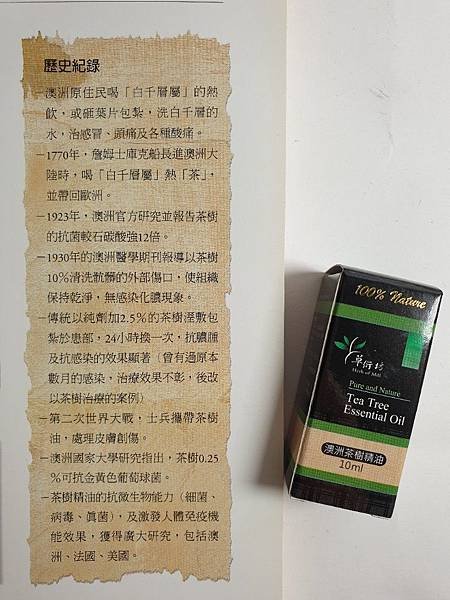 歷史紀錄
－澳洲原住民喝「白千層屬」的熱
飲，或砸葉片包紮，洗白千層的
水，治感冒、頭痛及各種酸痛。
－1770年，詹姆士庫克船長進澳洲大
陸時，喝「白千層屬」熱「茶」，
並帶回歐洲。
－1923年，澳洲官方研究並報告茶樹
的抗菌較石碳酸強12倍。
－1930年的澳洲醫學期刊報導以茶樹
10%清洗骯髒的外部傷口，使組織
保持乾淨，無感染化膿現象。
－傳統以純劑加2.5%的茶樹溼敷包
紮於患部，24小時換一次，抗膿腫
及抗感染的效果顯著（曾有過原本
數月的感染，治療效果不彰，後改
以茶樹治療的案例）
－第二次世界大戰，士兵攜帶茶樹
油，處理皮膚創傷。
－澳洲國家大學研究指出，茶樹0.25
%可抗金黃色葡萄球菌。
－茶樹精油的抗微生物能力（細菌、
病毒、真菌），及激發人體免疫機
能效果，獲得廣大研究，包括澳
洲、法國、美國。
100% Nature
草衍坊
Herb of Mill
Pure and Nature
Tea Tree
Essential Oil
澳洲茶樹精油
10ml